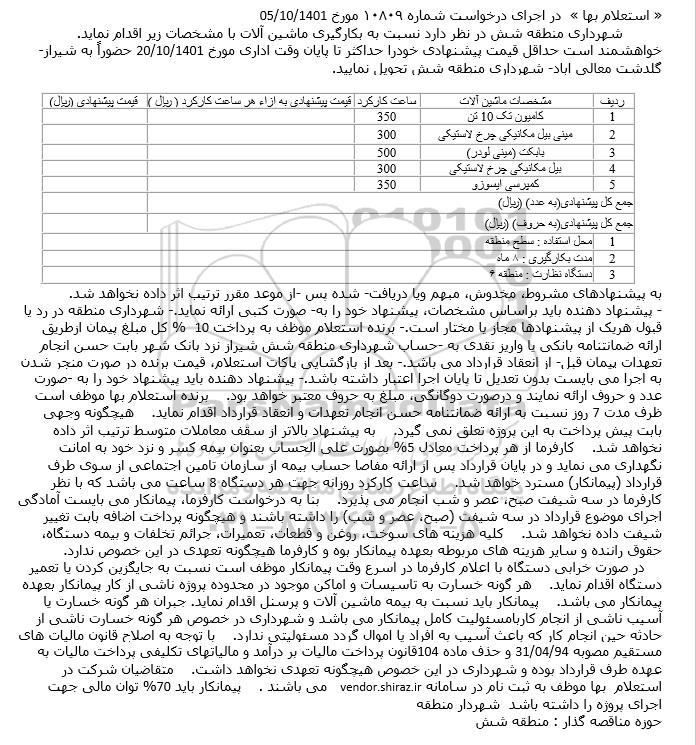 « استعلام بها » در اجرای درخواست شماره ۱۰۸۰۹ مورخ 05/10/1401
شهرداری منطقه شش در نظر دارد نسبت به بکارگیری ماشین آلات با مشخصات زیر اقدام نماید.
خواهشمند است حداقل قیمت پیشنهادی خودرا حداکثر تا پایان وقت اداری مورخ 20/10/1401 حضوراً به شیراز-
گلدشت معالی اباد- شهرداری منطقه شش تحویل نمایید.
ردیف مشخصات ماشین آلات ساعت کارکرد قیمت پیشنهادی به ازاء هر ساعت کارکرد ( ریال ) قیمت پیشنهادی (ریال)
1 کامیون تک 10 تن 350
2 مینی بیل مکانیکی چرخ لاستیکی 300
3 بابکت (مینی لودر) 500
4 بیل مکانیکی چرخ لاستیکی 300
5 کمپرسی ایسوزو 350
جمع کل پیشنهادی(به عدد) (ریال)
جمع کل پیشنهادی(به حروف) (ریال)
1 محل استفاده : سطح منطقه
2 مدت بکارگیری : ۸ ماه
3 دستگاه نظارت : منطقه ۶
به پیشنهادهای مشروط، مخدوش، مبهم ویا دریافت- شده پس -از موعد مقرر ترتیب اثر داده نخواهد شد.
- پیشنهاد دهنده باید براساس مشخصات، پیشنهاد خود را به- صورت کتبی ارائه نماید.- شهرداری منطقه در رد یا
قبول هریک از پیشنهادها مجاز یا مختار است.- برنده استعلام موظف به پرداخت 10 % کل مبلغ پیمان ازطریق
ارائه ضمانتنامه بانکی یا واریز نقدی به -حساب شهرداری منطقه شش شیراز نزد بانک شهر بابت حسن انجام
تعهدات پیمان قبل- از انعقاد قرارداد می باشد.- بعد از بازگشایی پاکات استعلام، قیمت برنده در صورت منجر شدن
به اجرا می بایست بدون تعدیل تا پایان اجرا اعتبار داشته باشد.- پیشنهاد دهنده باید پیشنهاد خود را به -صورت
عدد و حروف ارائه نمایند و درصورت دوگانگی، مبلغ به حروف معتبر خواهد بود. برنده استعلام بها موظف است
ظرف مدت 7 روز نسبت به ارائه ضمانتنامه حسن انجام تعهدات و انعقاد قرارداد اقدام نماید. هیچگونه وجهی
بابت پیش پرداخت به این پروژه تعلق نمی گیرد. به پیشنهاد بالاتر از سقف معاملات متوسط ترتیب اثر داده
نخواهد شد. کارفرما از هر پرداخت معادل 5% بصورت علی الحساب بعنوان بیمه کسر و نزد خود به امانت
نگهداری می نماید و در پایان قرارداد پس از ارائه مفاصا حساب بیمه از سازمان تامین اجتماعی از سوی طرف
قرارداد (پیمانکار) مسترد خواهد شد. ساعت کارکرد روزانه جهت هر دستگاه 8 ساعت می باشد که با نظر
کارفرما در سه شیفت صبح، عصر و شب انجام می پذیرد. بنا به درخواست کارفرما، پیمانکار می بایست آمادگی
اجرای موضوع قرارداد در سه شیفت (صبح، عصر و شب) را داشته باشند و هیچگونه پرداخت اضافه بابت تغییر
شیفت داده نخواهد شد. کلیه هزینه های سوخت، روغن و قطعات، تعمیرات، جرائم تخلفات و بیمه دستگاه،
حقوق راننده و سایر هزینه های مربوطه بعهده پیمانکار بوه و کارفرما هیچگونه تعهدی در این خصوص ندارد.
در صورت خرابی دستگاه با اعلام کارفرما در اسرع وقت پیمانکار موظف است نسبت به جایگزین کردن یا تعمیر
دستگاه اقدام نماید. هر گونه خسارت به تاسیسات و اماکن موجود در محدوده پروژه ناشی از کار پیمانکار بعهده
پیمانکار می باشد. پیمانکار باید نسبت به بیمه ماشین آلات و پرسنل اقدام نماید. جبران هر گونه خسارت یا
آسیب ناشی از انجام کاربامسئولیت کامل پیمانکار می باشد و شهرداری در خصوص هر گونه خسارت ناشی از
حادثه حین انجام کار که باعث آسیب به افراد یا اموال گردد مسئولیتی ندارد. با توجه به اصلاح قانون مالیات های
مستقیم مصوبه 31/04/94 و حذف ماده 104قانون پرداخت مالیات بر درآمد و مالیاتهای تکلیفی پرداخت مالیات به
عهده طرف قرارداد بوده و شهرداری در این خصوص هیچگونه تعهدی نخواهد داشت. متقاضیان شرکت در
استعلام بها موظف به ثبت نام در سامانه vendor.shiraz.ir می باشند . پیمانکار باید 70% توان مالی جهت
اجرای پروژه را داشته باشد شهردار منطقه
حوزه مناقصه گذار : منطقه شش